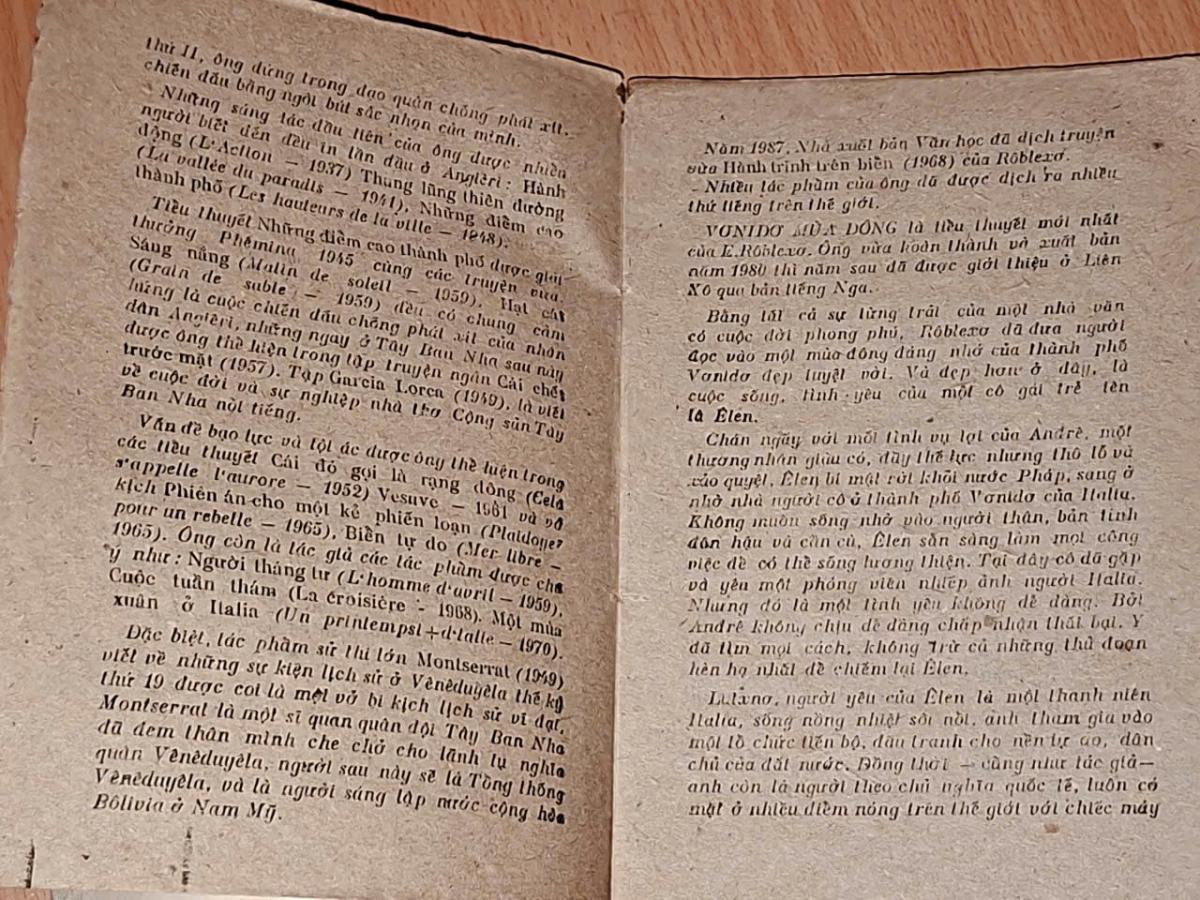 thứ II, ông đứng trong đạo quân chống phát xít.
chiến đấu bằng ngòi bút sắc nhọn của mình.
Những sáng tác đầu tiên của ông được nhiều
người biết đến đều in lần đầu ở Angiêri : Hành
động (L'Action — 1937) Thung lũng thiên đường
(La vallée du paradis — 1941), Những điểm cao
thành phố (Les hauteurs de la ville — 1948).
Tiểu thuyết Những điểm cao thành phố được giải
thưởng Phêmina 1945 cùng các truyện vừa.
Sáng nắng (Matin de soleil — 1959). Hạt cát
(Grain de sable — 1959) đều có chung cảm
hứng là cuộc chiến đấu chống phát xít của nhân
dân Angiêri, những ngay ở Tây Ban Nha sau này
được ông thể hiện trong tập truyện ngắn Cái chết
trước mặt (1957). Tập Garcia Lorca (1949), là viết
về cuộc đời và sự nghiệp nhà thơ Cộng sản Tây
Ban Nha nổi tiếng.
Vấn đề bạo lực và tội ác được ông thể hiện trong
các tiểu thuyết Cái đó gọi là rạng đông (Cela
s'appelle l'aurore — 1952) Vesuve — 1961 và vở
kịch Phiên án cho một kẻ phiến loạn (Plaidoyer
pour un rebelle — 1965), Biển tự do (Mer libre —
1965). Ông còn là tác giả các tác phẩm được chú
ý như : Người tháng tư (L'homme d'avril — 1959),
Cuộc tuần thám (La croisière - 1968). Một mùa
xuân ở Italia (Un printempsl+d'lalie — 1970).
Đặc biệt, tác phẩm sử thi lớn Montserrat (1949)
viết về những sự kiện lịch sử ở Vênêduyêla thế kỷ
thứ 19 được coi là một vở bi kịch lịch sử vĩ đại,
Montserrat là một sĩ quan quân đội Tây Ban Nha
đã đem thân mình che chở cho lãnh tụ nghĩa
quân Vênêduyêla, người sau này sẽ là Tổng thống
Vênêduyêla, và là người sáng lập nước cộng hòa
Bôlivia ở Nam Mỹ.
Năm 1987, Nhà xuất bản Văn học đã dịch truyện
vừa Hành trình trên biển (1968) của Rôblexơ.
- Nhiều tác phẩm của ông đã được dịch ra nhiều
thứ tiếng trên thế giới.
VƠNIDƠ MÙA ĐÔNG là tiểu thuyết mới nhất
của E.Rôblexơ. Ông vừa hoàn thành và xuất bản
năm 1980 thì năm sau đã được giới thiệu ở Liên
Xô qua bản tiếng Nga.
Bằng tất cả sự từng trải của một nhà văn
có cuộc đời phong phú, Rôblexơ đã đưa người
đọc vào một mùa đông đáng nhớ của thành phố
Vơnidơ đẹp tuyệt vời. Và đẹp hơn ở đây, là
cuộc sống, tình yêu của một cô gái trẻ tên
là Êlen.
Chán ngấy với mối tình vụ lợi của Anđrê, một
thương nhân giàu có, đầy thế lực nhưng thô lỗ và
xảo quyệt, Êlen bí mật rời khỏi nước Pháp, sang ở
nhờ nhà người cô ở thành phố Vơnidơ của Italia.
Không muốn sống nhờ vào người thân, bản tính
đôn hậu và cần cù, Êlen sẵn sàng làm mọi công
việc để có thể sống lương thiện. Tại đây cô đã gặp
và yêu một phóng viên nhiếp ảnh người Italia.
Nhưng đó là một tình yêu không dễ dàng. Bởi
Anđrê không chịu dễ dàng chấp nhận thất bại. Y
đã tìm mọi cách, không trừ cả những thủ đoạn
hèn hạ nhất để chiếm lại Êlen.
người yêu của Êlen là một thanh niên
Italia, sống nồng nhiệt sôi nổi, anh tham gia vào
một tổ chức tiến bộ, đấu tranh cho nền tự do, dân
chủ của đất nước. Đồng thời — cũng như tác giả—
anh còn là người theo chủ nghĩa quốc tế, luôn có
mặt ở nhiều điểm nóng trên thế giới với chiếc máy